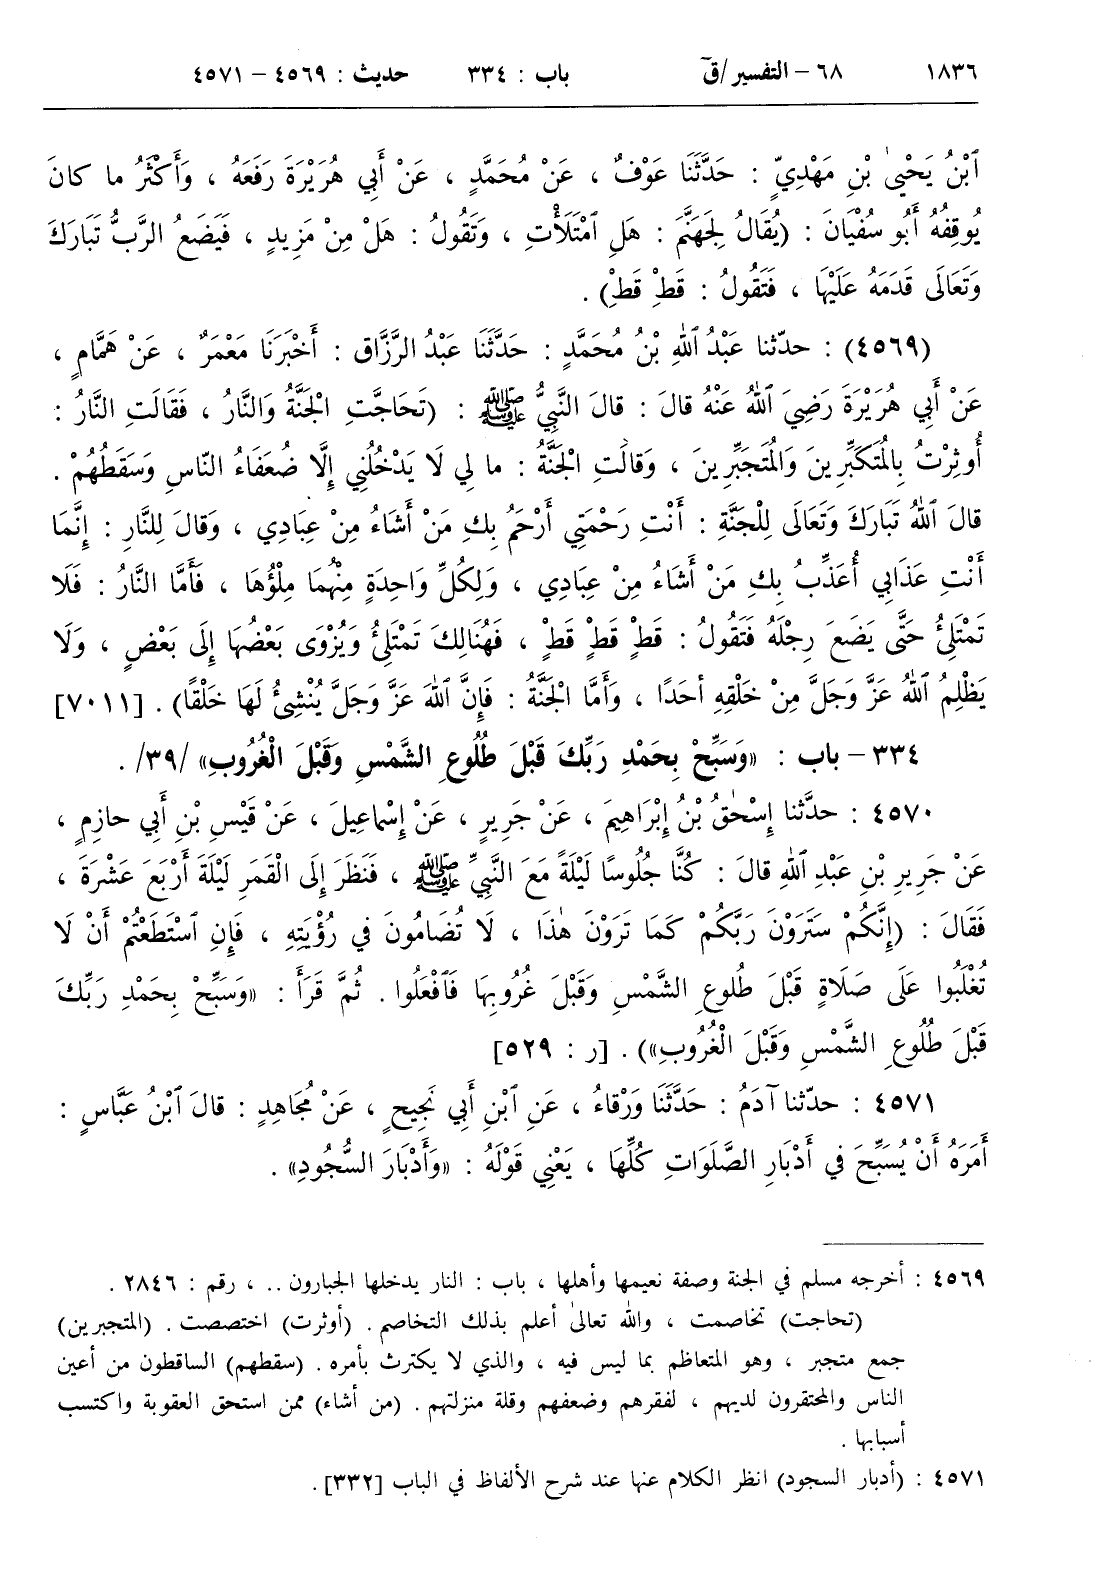 ١٨٣٦ ٦٨ – التفسير/قٓ باب : ٣٣٤ حديث : ٤٥٦٩ – ٤٥٧١
ٱبْنُ يَحْيىٰ بْنِ مَهْدِيٍّ : حَدَّثَنَا عَوْفٌ ، عَنْ مُحَمَّدٍ ، عَنْ أَبِي هُرَيْرَةَ رَفَعَهُ ، وَأَكْثَرُ ما كانَ
يُوقِفُهُ أَبُو سُفْيَانَ : (يُقَالُ لِجَهَنَّمَ : هَلِ ٱمْتَلَأْتِ ، وَتَقُولُ : هَلْ مِنْ مَزِيدٍ ، فَيَضَعُ الرَّبُّ تَبَارَكَ
وَتَعَالَى قَدَمَهُ عَلَيْهَا ، فَتَقُولُ : قَطْ قَطْ) .
(٤٥٦٩) : حدّثنا عَبْدُ ٱللهِ بْنُ مُحَمَّدٍ : حَدَّثَنَا عَبْدُ الرَّزَّاقِ : أَخْبَرَنَا مَعْمَرٌ ، عَنْ هَمَّامٍ ،
عَنْ أَبِي هُرَيْرَةَ رَضِيَ ٱللهُ عَنْهُ قالَ : قالَ النَّبِيُّ ﷺ : (تَحَاجَّتِ الْجَنَّةُ وَالنَّارُ ، فَقَالَتِ النَّارُ :
أُوثِرْتُ بِالْمُتَكَبِّرِينَ وَالْمُتَجَبِّرِينَ ، وَقالَتِ الْجَنَّةُ : ما لِي لَا يَدْخُلُنِي إِلَّا ضُعَفَاءُ النَّاسِ وَسَقَطُهُمْ .
قالَ ٱللهُ تَبَارَكَ وَتَعَالَى لِلْجَنَّةِ : أَنْتِ رَحْمَتِي أَرْحَمُ بِكِ مَنْ أَشَاءُ مِنْ عِبَادِي ، وَقالَ لِلنَّارِ : إِنَّمَا
أَنْتِ عَذَابِي أُعَذِّبُ بِكِ مَنْ أَشَاءُ مِنْ عِبَادِي ، وَلِكُلِّ وَاحِدَةٍ مِنْهُمَا مِلْؤُهَا ، فَأَمَّا النَّارُ : فَلَا
تَمْتَلِئُ حَتَّى يَضَعَ رِجْلَهُ فَتَقُولُ : قَطٍ قَطٍ قَطٍ ، فَهُنَالِكَ تَمْتَلِئُ وَيُزْوَى بَعْضُهَا إِلَى بَعْضٍ ، وَلَا
يَظْلِمُ ٱللهُ عَزَّ وَجَلَّ مِنْ خَلْقِهِ أحَدًا ، وَأَمَّا الْجَنَّةُ : فَإِنَّ ٱللهَ عَزَّ وَجَلَّ يُنْشِئُ لَهَا خَلْقًا) . [٧٠١١]
٣٣٤ – باب : «وَسَبِّحْ بِحَمْدِ رَبِّكَ قَبْلَ طُلُوعِ الشَّمْسِ وَقَبْلَ الْغُرُوبِ» /٣٩/ .
٤٥٧٠ : حدّثنا إِسْحٰقُ بْنُ إِبْرَاهِيمَ ، عَنْ جَرِيرٍ ، عَنْ إِسْماعِيلَ ، عَنْ قَيْسِ بْنِ أَبِي حازِمٍ ،
عَنْ جَرِيرِ بْنِ عَبْدِ ٱللهِ قالَ : كُنَّا جُلُوسًا لَيْلَةً مَعَ النَّبِيِّ ﷺ ، فَنَظَرَ إِلَى الْقَمَرِ لَيْلَةَ أَرْبَعَ عَشْرَةَ ،
فَقَالَ : (إِنَّكُمْ سَتَرَوْنَ رَبَّكُمْ كَمَا تَرَوْنَ هٰذَا ، لَا تُضَامُونَ في رُؤْيَتِهِ ، فَإِنِ ٱسْتَطَعْتُمْ أَنْ لَا
تُغْلَبُوا عَلَى صَلَاةٍ قَبْلَ طُلوعِ الشَّمْسِ وَقَبْلَ غُرُوبِهَا فَٱفْعَلُوا . ثُمَّ قَرَأَ : «وَسَبِّحْ بِحَمْدِ رَبِّكَ
قَبْلَ طُلُوعِ الشَّمْسِ وَقَبْلَ الْغُرُوبِ») . [ر : ٥٢٩]
٤٥٧١ : حدّثنا آدَمُ : حَدَّثَنَا وَرْقاءُ ، عَنِ ٱبْنِ أَبِي نَجِيحٍ ، عَنْ مُجَاهِدٍ : قالَ ٱبْنُ عَبَّاسٍ :
أَمَرَهُ أَنْ يُسَبِّحَ في أَدْبَارِ الصَّلَوَاتِ كُلِّهَا ، يَعْنِي قَوْلَهُ : «وَأَدْبَارَ السُّجُودِ» .
٤٥٦٩ : أخرجه مسلم في الجنة وصفة نعيمها وأهلها ، باب : النار يدخلها الجبارون .. ، رقم : ٢٨٤٦ .
(تحاجت) تخاصمت ، والله تعالىٰ أعلم بذلك التخاصم . (أوثرت) اختصصت . (المتجبرين)
جمع متجبر ، وهو المتعاظم بما ليس فيه ، والذي لا يكترث بأمره . (سقطهم) الساقطون من أعين
الناس والمحتقرون لديهم ، لفقرهم وضعفهم وقلة منزلتهم . (من أشاء) ممن استحق العقوبة واكتسب
أسبابها .
٤٥٧١ : (أدبار السجود) انظر الكلام عنها عند شرح الألفاظ في الباب [٣٣٢] .